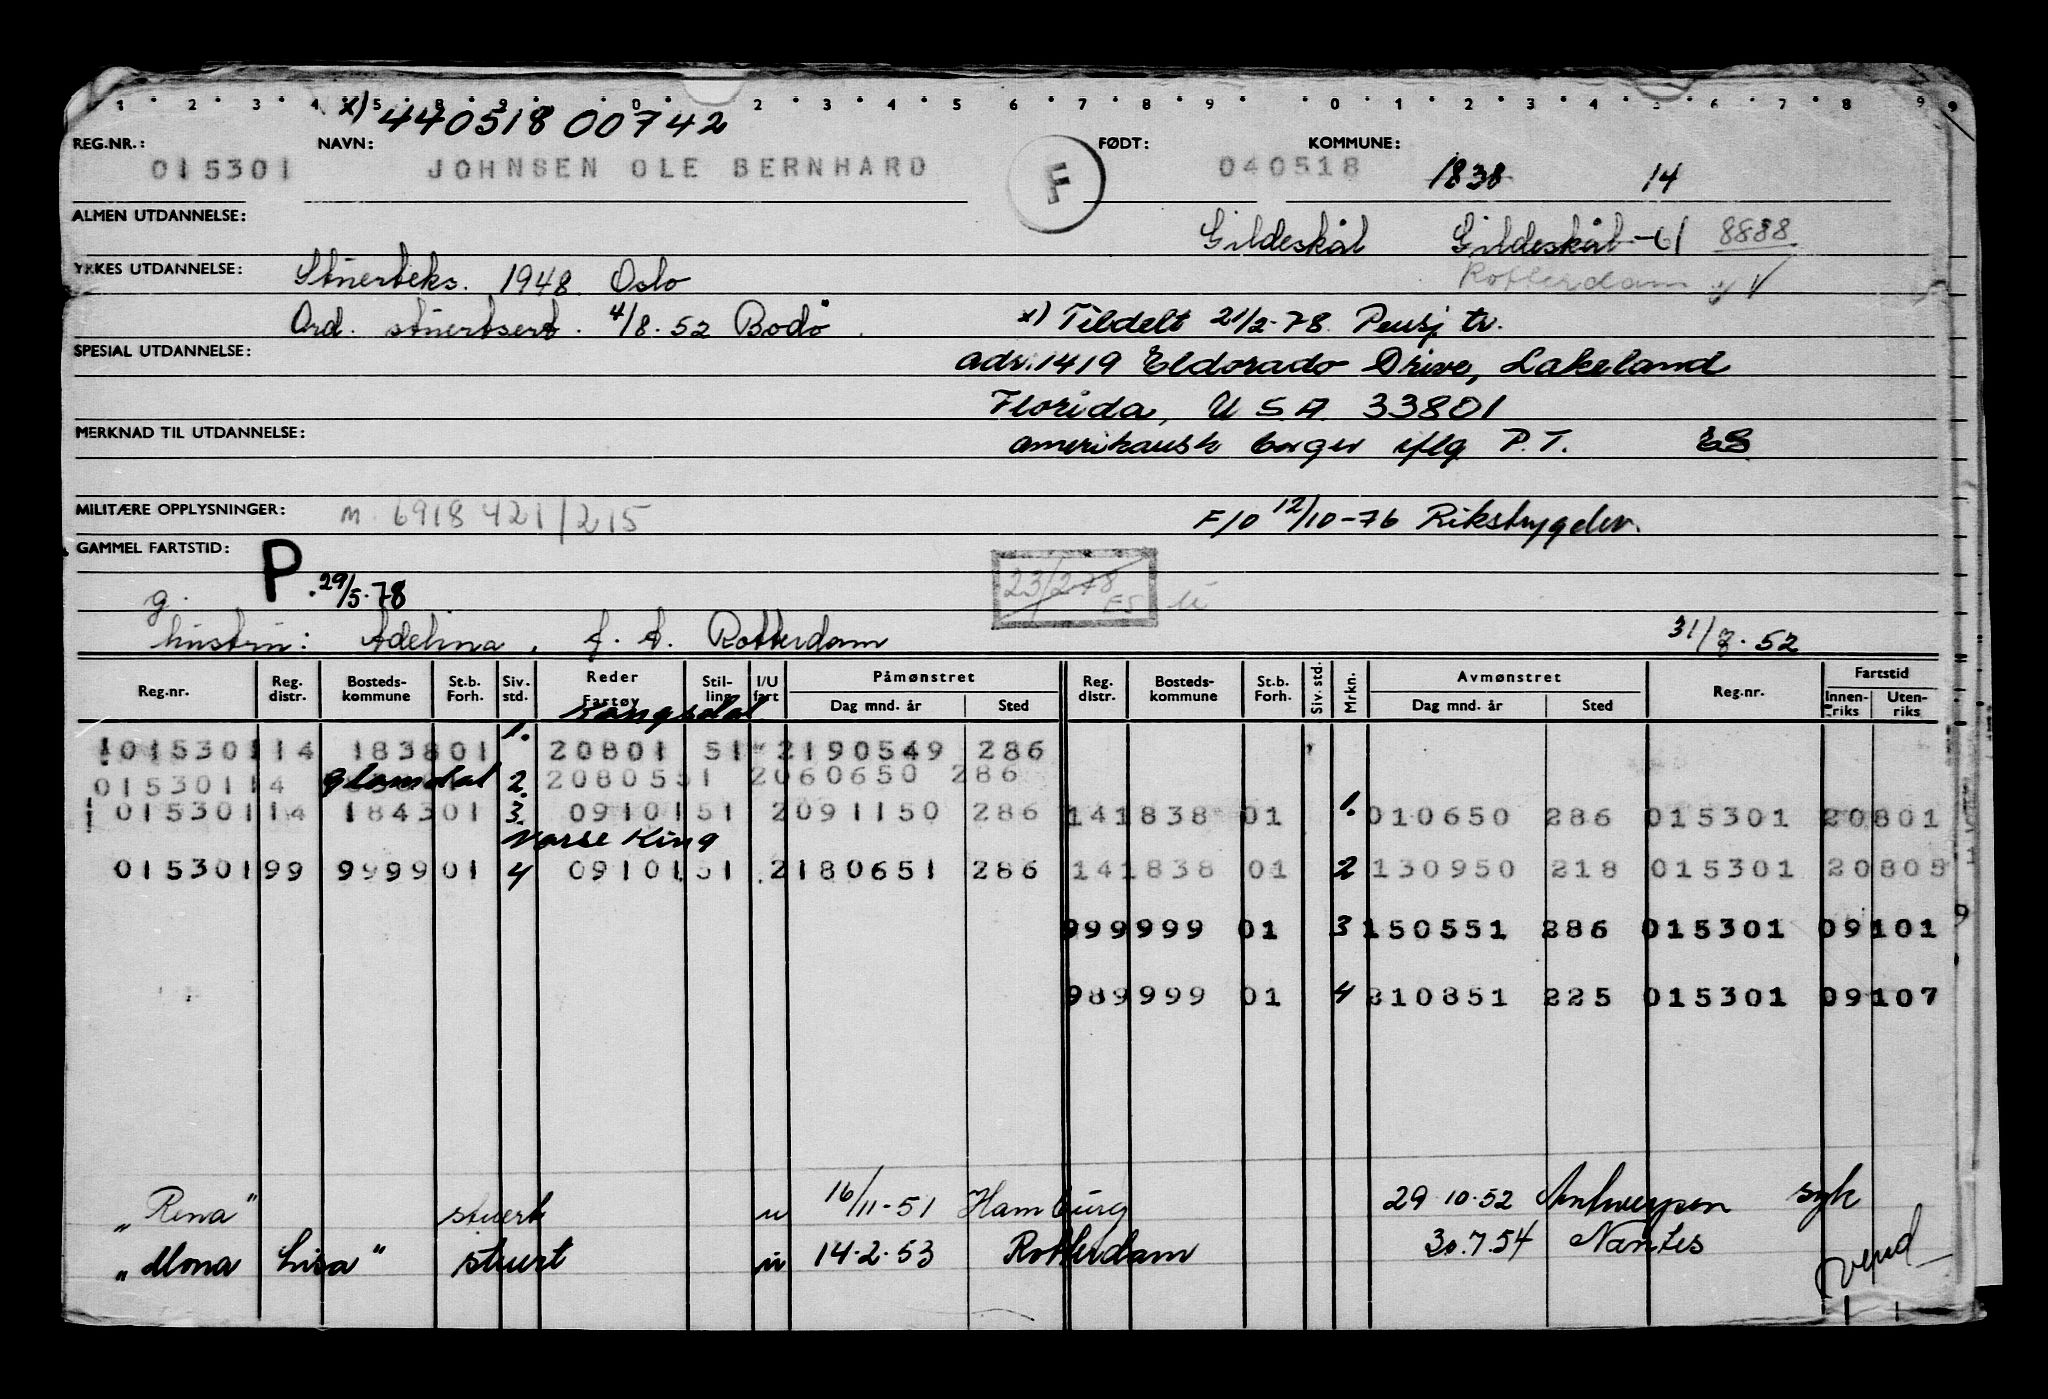 1 2 3 4 5 8 9 0 2 3 4 5 6 7 8 9 0 1 2 3 4 5 6 7 8 9
x) 440518 00742
REG.NR.: NAVN: FØDT: KOMMUNE:
015301 JOHNSEN OLE BERNHARD F 040518 1838 14
ALMEN UTDANNELSE:
Gildeskål Gildeskål-61 8888
YRKES UTDANNELSE: Stuerteks. 1948 Oslo Rotterdam
Ord. stuertsert. 4/8.52 Bodö. x) Tildelt 21/2-78 Pensj tr.
SPESIAL UTDANNELSE:
adr. 1419 Eldorado Drive, Lakeland
Florida, USA 33801
MERKNAD TIL UTDANNELSE:
amerikansk borger iflg P.T. ES
MILITÆRE OPPLYSNINGER: m 6918 421/215 F/0 12/10-76 Rikstrygdev.
GAMMEL FARTSTID:
P. 29/5.78 23/2-78 ES
g.
hustru: Adelina, f. A. Rotterdam 31/8.52
Reg.nr. Reg. distr. Bosteds-kommune St.b. Forh. Siv. std. Reder Fartøy Stil-ling I/U fart Påmønstret Dag mnd. år Sted Reg. distr. Bosteds-kommune St.b. Forh. Siv. std. Mrkn. Avmønstret Dag mnd. år Sted Reg.nr. Fartstid Innen-riks Uten-riks
Kongsdal
015301 14 1838 01 1. 20801 51 2 190549 286
015301 14 Glomdal 2. 20805 51 2 060650 286
015301 14 1843 01 3. 09101 51 2 091150 286 14 1838 01 1. 010650 286 015301 20801
Norse King
015301 99 9999 01 4 09101 51 2 180651 286 14 1838 01 2 130950 218 015301 20805
99 9999 01 3 150551 286 015301 09101
98 9999 01 4 210851 225 015301 09107
"Rena" stuert u 16/11-51 Hamburg 29 10.52 Antwerpen syk
"Mona Lisa" stuert u 14.2.53 Rotterdam 30.7.54 Nantes
vend